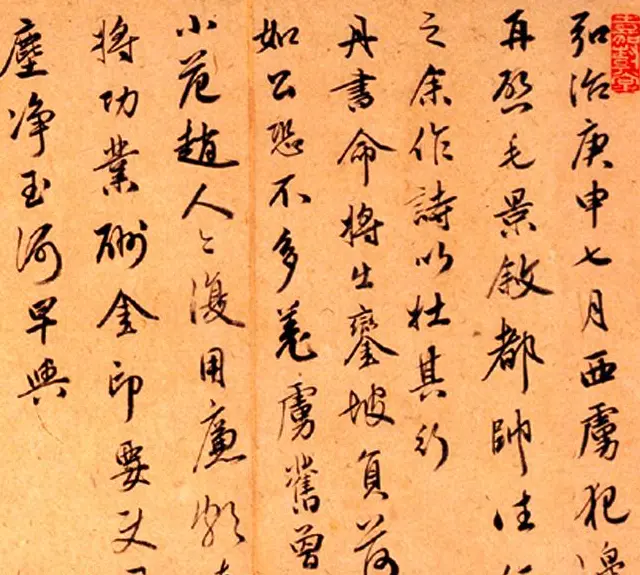 弘治庚申七月西虜犯邊
再啓毛景敘都帥往
之余作詩以壯其行
丹書命將出鑾坡負荷
如公恐不多羌虜舊曾
小范趙人今復用廉頗
將功業酬金印要丈
塵净玉河早與